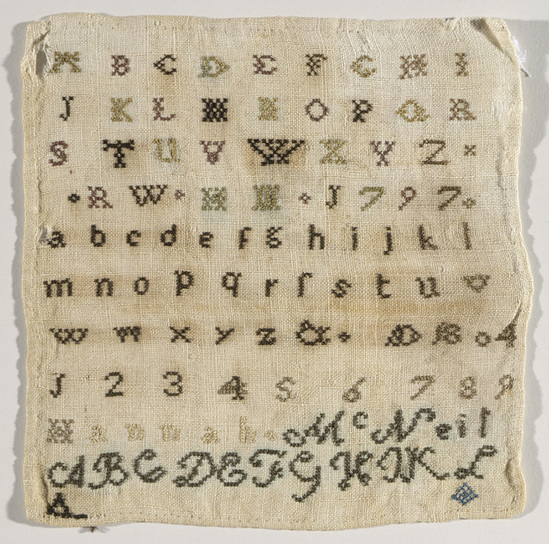 A B C D E F G H I
J K L M N O P Q R
S T U V W X Y Z
R W H M J 7 9 7
a b c d e f g h i j k l
m n o p q r ſ s t u v
w w x y z &
J 2 3 4 5 6 7 8 9
Hannah McNeil
A B C D E F G H I K L